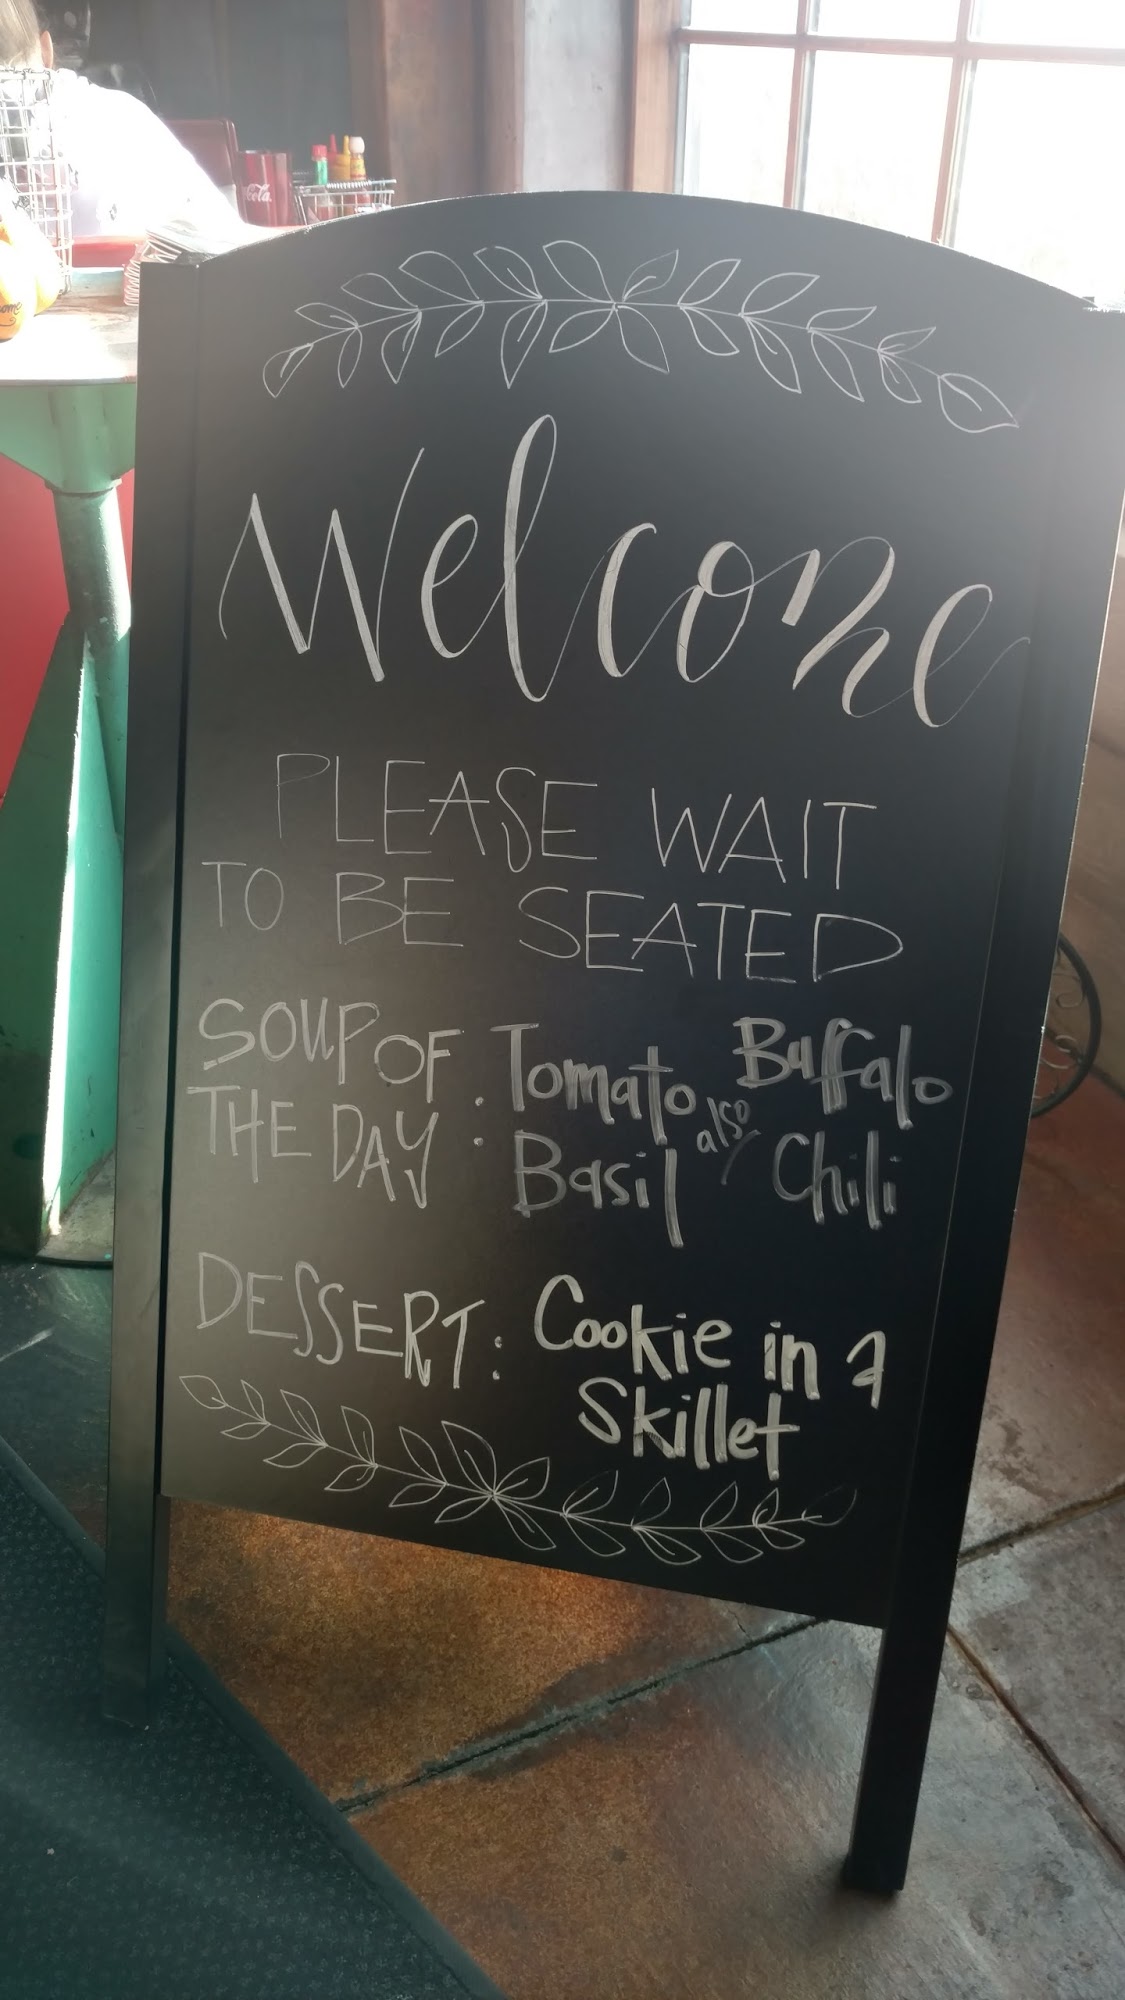 Cola
ome
Welcome
PLEASE WAIT
TO BE SEATED
SOUP OF
THE DAY :
Tomato
Basil
also
Buffalo
Chili
DESSERT: Cookie in a
Skillet